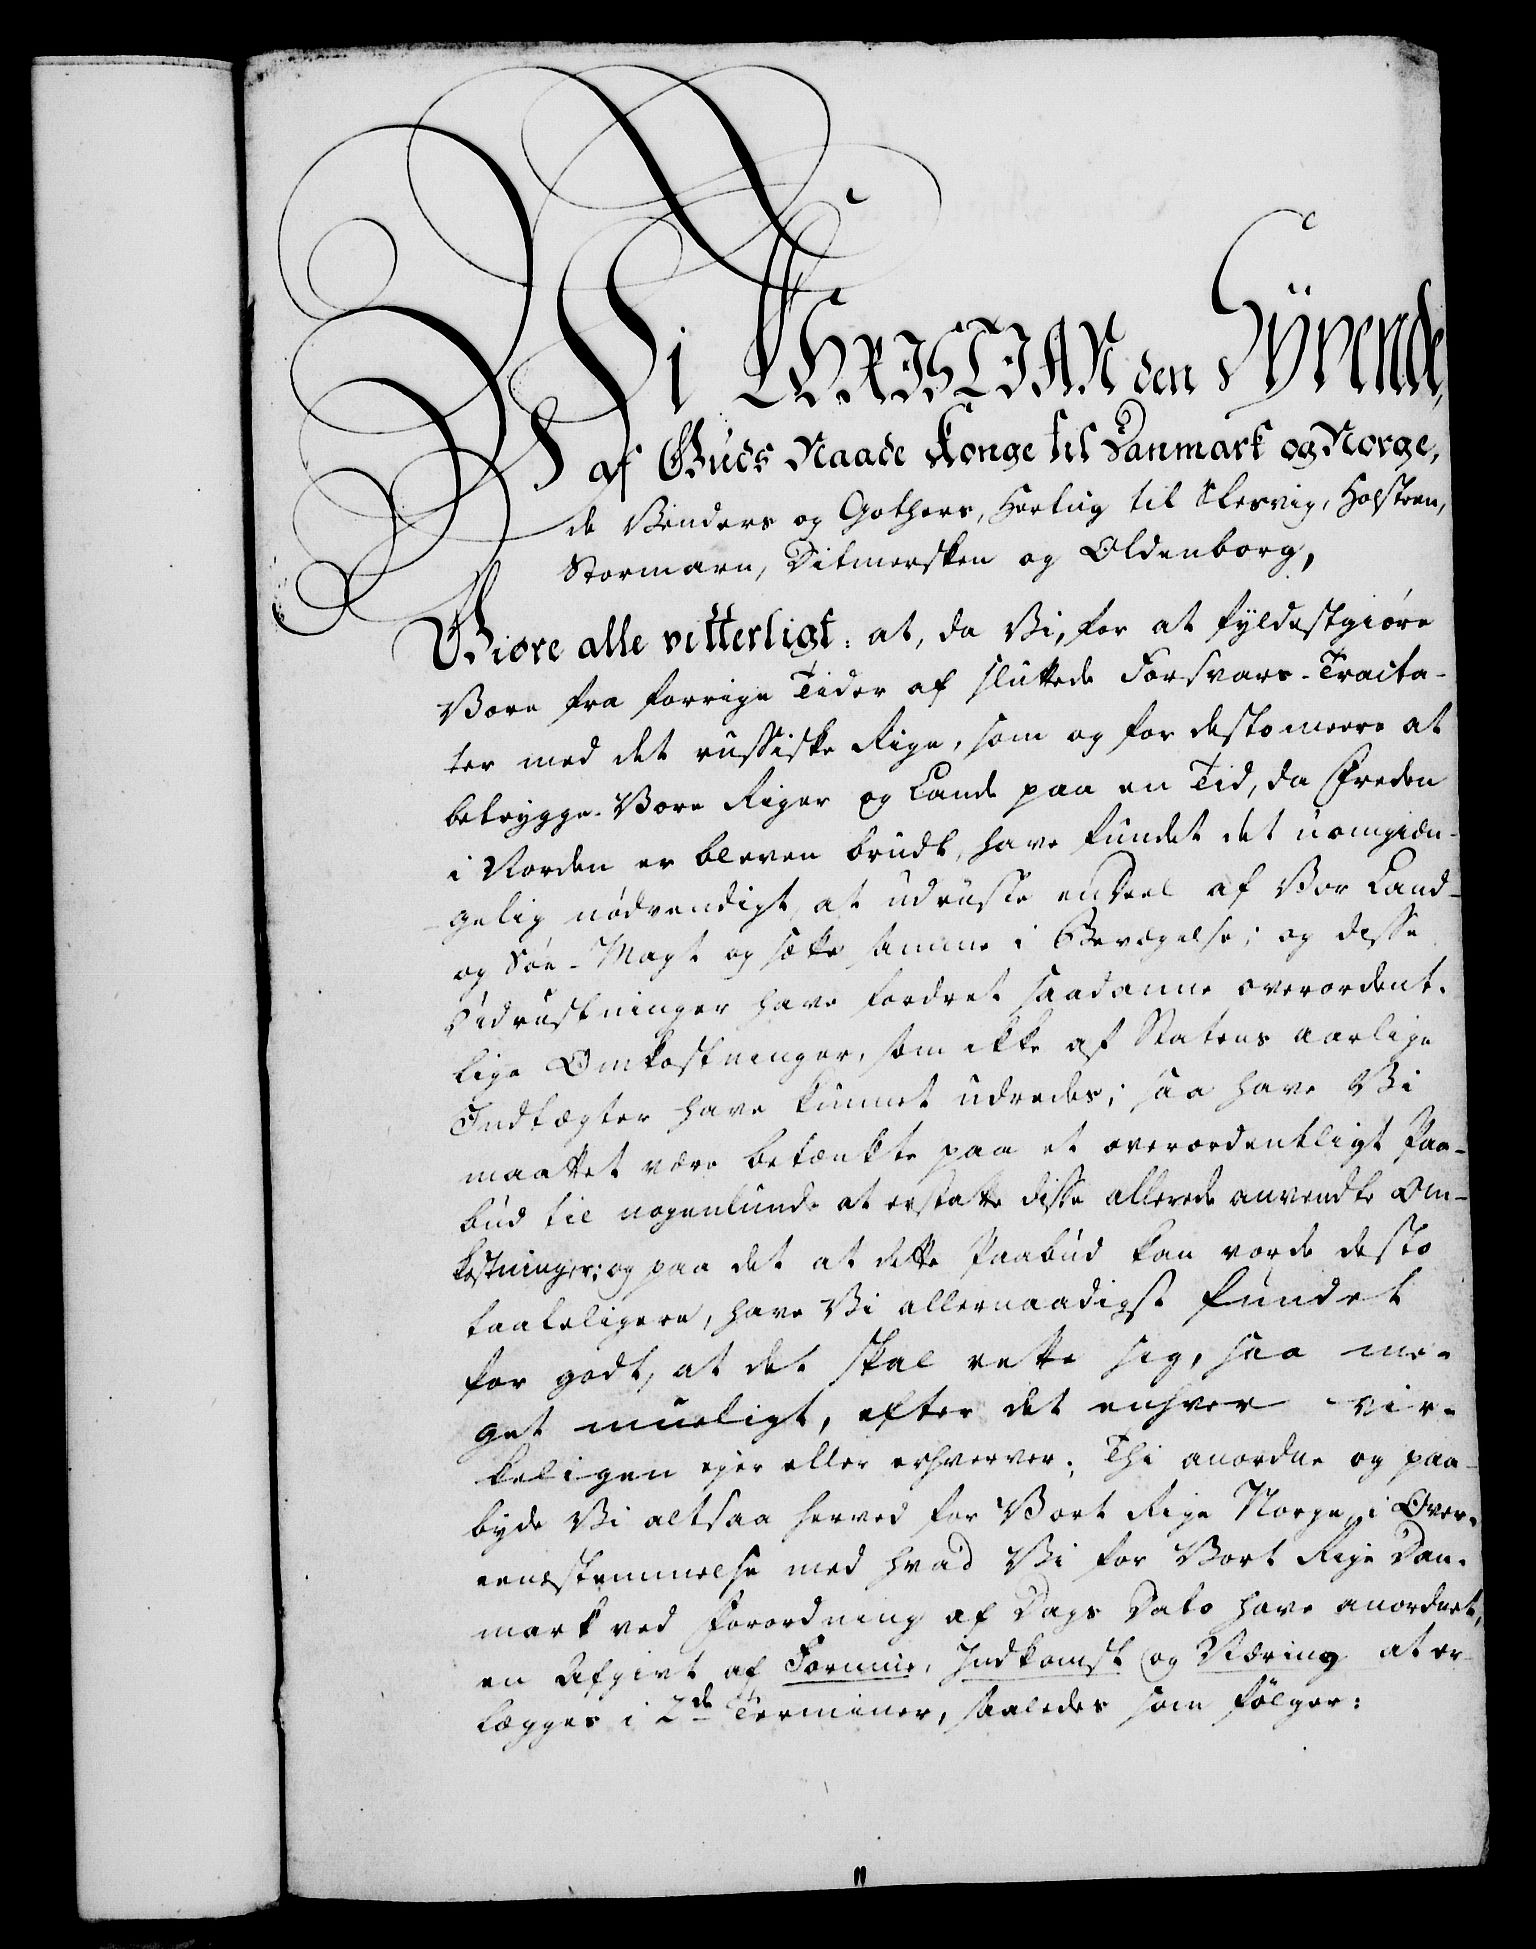 Vi CHRISTIAN den Syvende,
af Guds Naade Konge til Danmark og Norge,
de Venders og Gothers, Hertug til Slesvig, Holsteen,
Stormarn, Ditmersken og Oldenborg,
Giøre alle vitterligt: at, da Vi, for at fyldestgiøre
Vore fra forrige Tider af sluttede Forsvars-Tracta-
ter med det russiske Rige, som og for desto meere at
betrygge Vore Riger og Lande paa en Tid, da Freden
i Norden er bleven brudt, have fundet det uomgiæn-
gelig nødvendigt at udruste endeel af Vor Land-
og Søe-Magt og sætte samme i Bevægelse; og disse
Udrustninger have fordret saadanne overordent-
lige Omkostninger, som ikke af Statens aarlige
Indtægter have kunnet udredes; saa have Vi
maattet være betænkte paa et overordentligt Paa-
bud til nogenlunde at erstatte disse allerede anvendte Om-
kostninger; og paa det at dette Paabud kan vorde desto
taaleligere, have Vi allernaadigst fundet
for godt, at det skal rette sig, saa me-
get mueligt, efter det enhver vir-
keligen ejer eller erhverver; Thi anordne og paa-
byde Vi altsaa herved for Vort Rige Norge, i Over-
eensstemmelse med hvad Vi for Vort Rige Dan-
mark ved Forordning af Dags Dato have anordnet,
en Afgivt af Formue, Indkomst og Næring at er-
lægges i 2de Terminer, saaledes som følger: